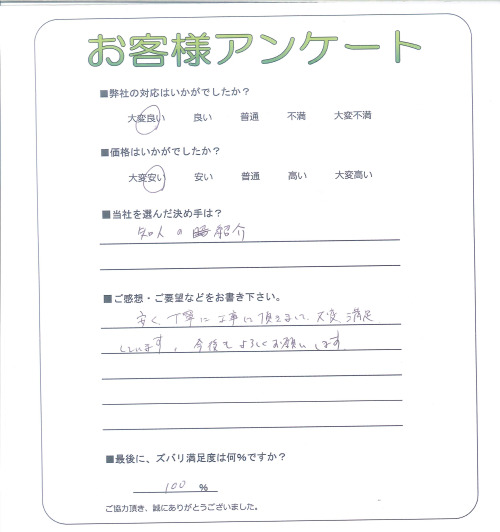 お客様アンケート
■弊社の対応はいかがでしたか?
大変良い 良い 普通 不満 大変不満
■価格はいかがでしたか?
大変安い 安い 普通 高い 大変高い
■当社を選んだ決め手は?
知人の紹介
■ご感想・ご要望などをお書き下さい。
安く、丁寧に工事して頂きまして、大変満足
しています。今後もよろしくお願いします。
■最後に、ズバリ満足度は何%ですか?
100 %
ご協力頂き、誠にありがとうございました。